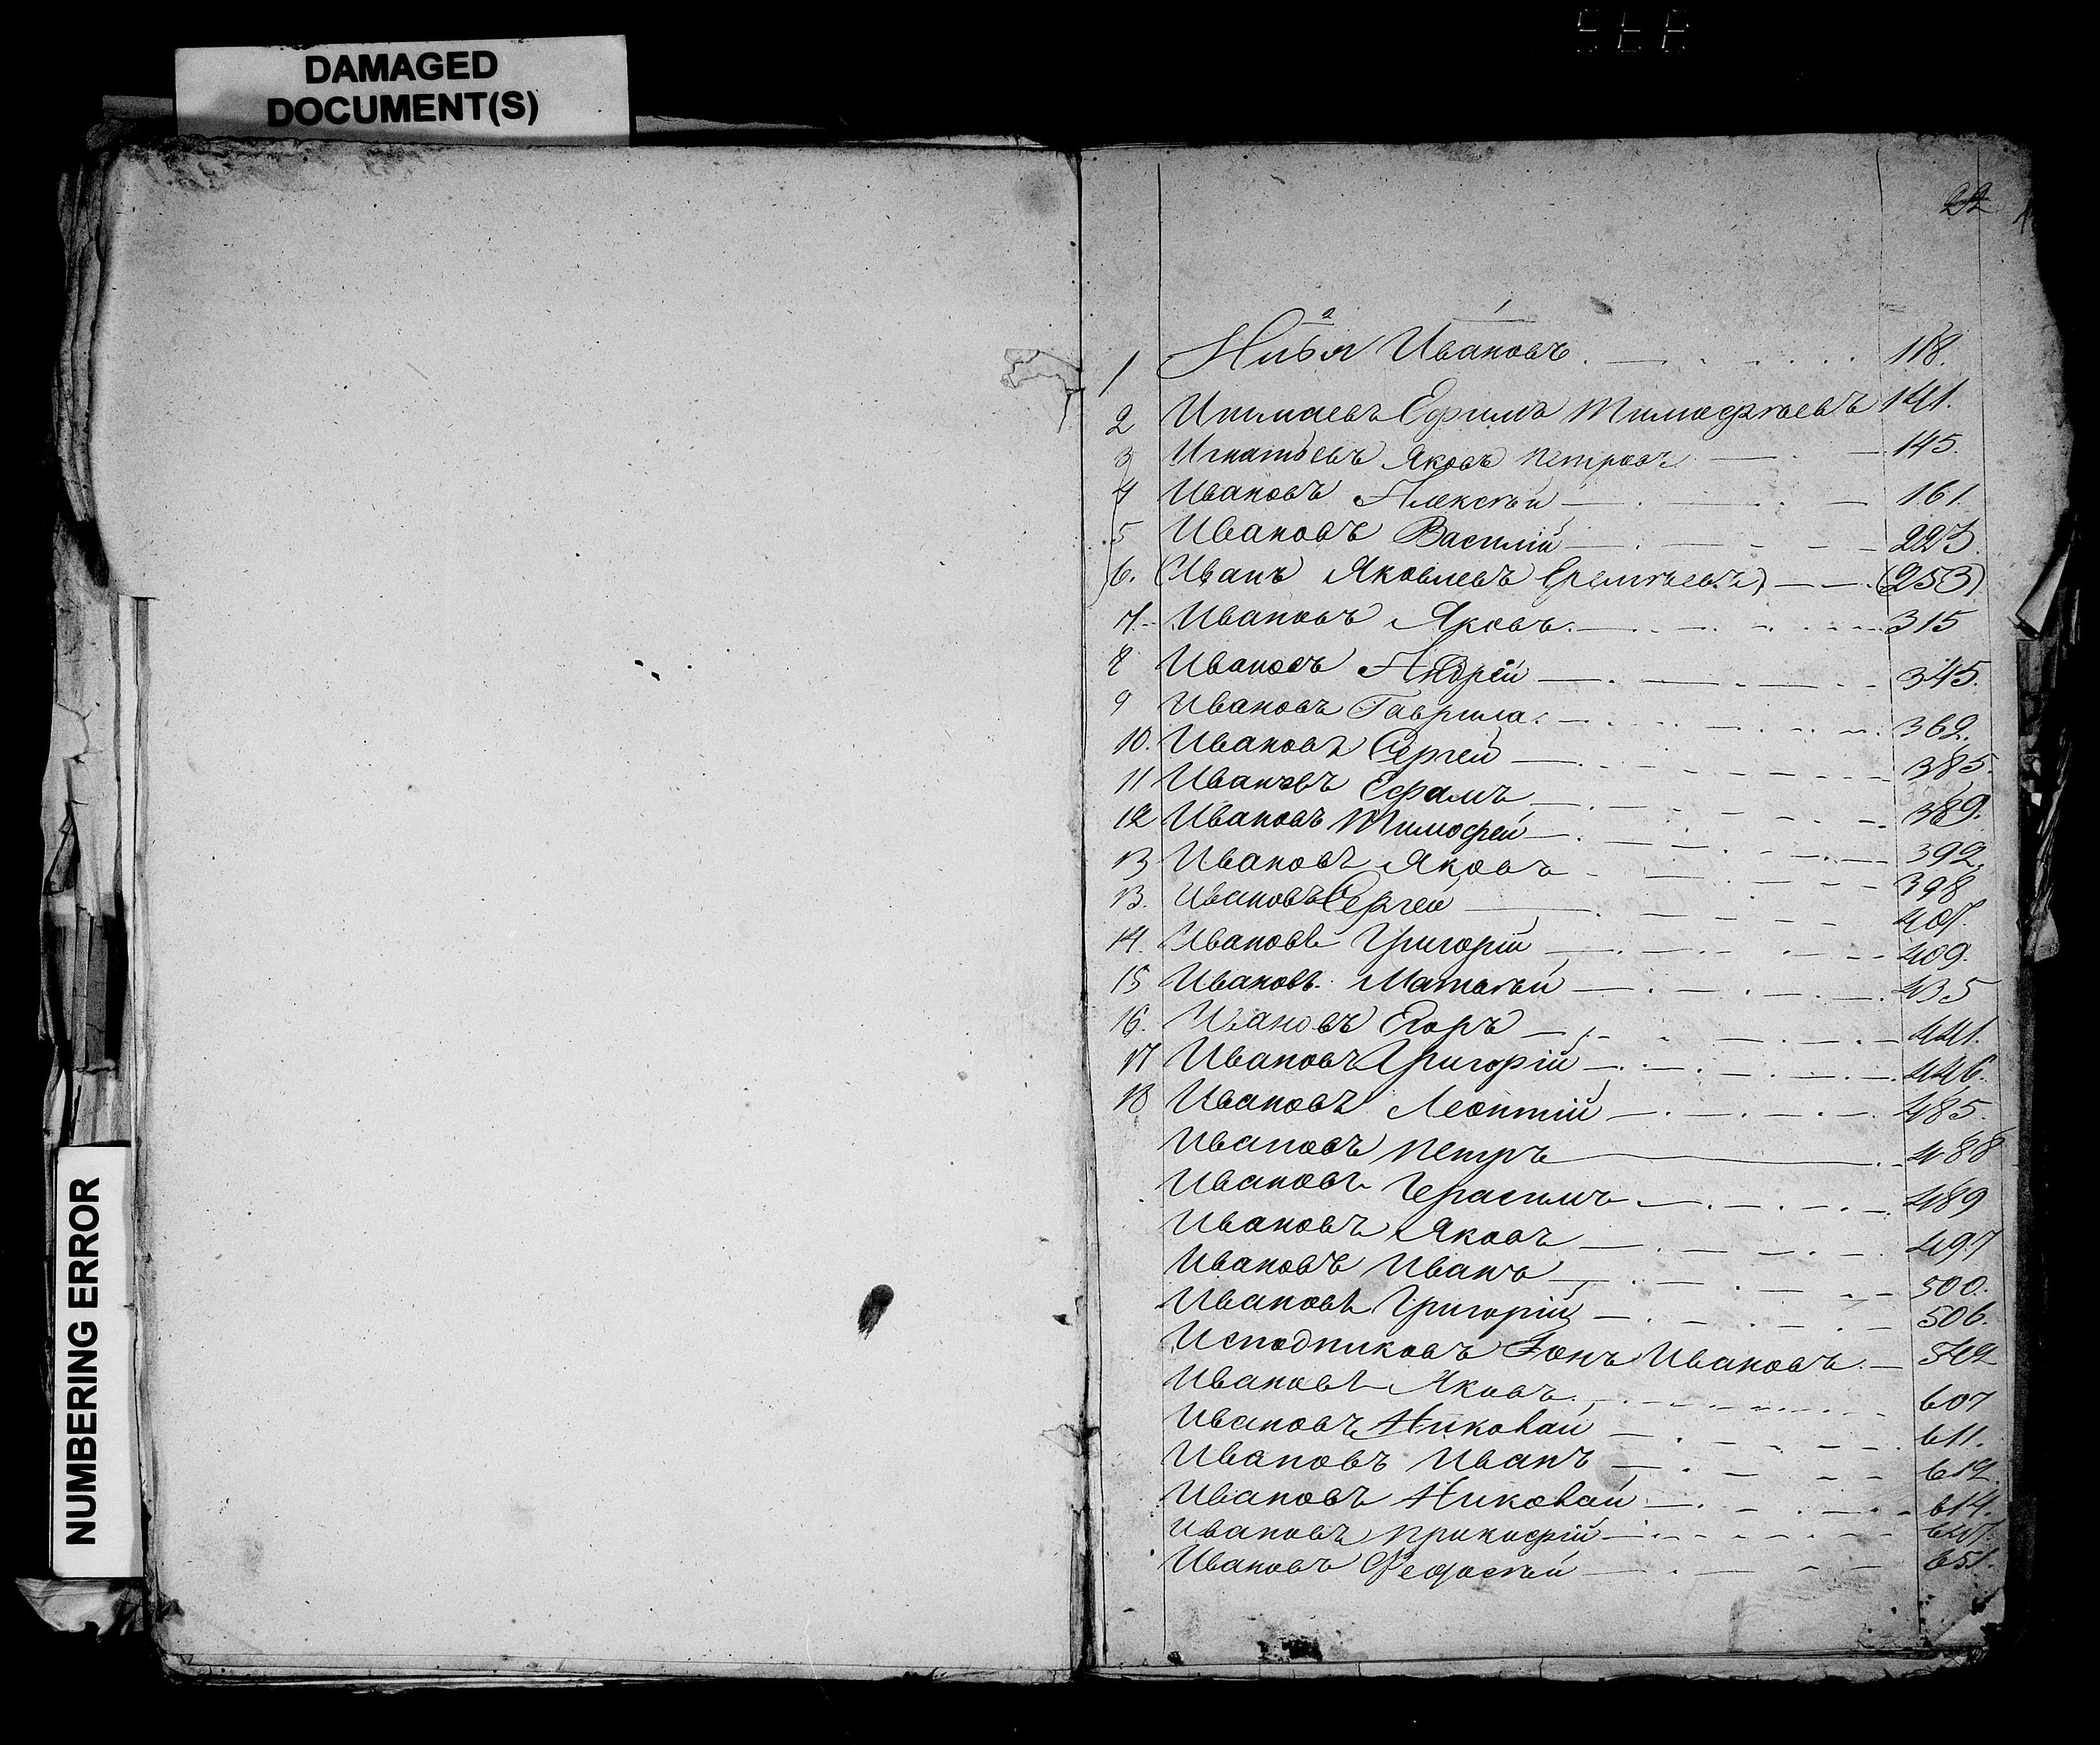 DAMAGED
DOCUMENT(S)
NUMBERING ERROR
22
1 Илья Ивановъ 118.
2 Ефимъ Тимофѣевъ 141.
3 Игнатьевъ Яковъ Петровъ 145.
4 Ивановъ Алексѣй 161.
5 Ивановъ Василій 223.
6. (Иванъ Яковлевъ Еремѣевъ) (253)
7. Ивановъ Яковъ 315
8 Ивановъ Андрей 345.
9 Ивановъ Гаврила 362.
10. Ивановъ Сергей 385.
11 Ивановъ Ефимъ 389.
12 Ивановъ Тимофей 392.
13 Ивановъ Яковъ 398
13. Ивановъ Сергей 407.
14. Ивановъ Григорій 409.
15 Ивановъ Матвѣй 435
16. Ивановъ Егоръ 441.
17 Ивановъ Григорій 446.
18 Ивановъ Леонтій 485.
Ивановъ Петръ 488
Ивановъ Герасимъ 489
Ивановъ Яковъ 497
Ивановъ Иванъ 500.
Ивановъ Григорій 506.
Исподниковъ Іонъ Ивановъ
Ивановъ Яковъ 607
Ивановъ Николай 611.
Ивановъ Иванъ 612.
Ивановъ Николай 614.
Ивановъ Прикофій
Ивановъ Федосѣй 651.